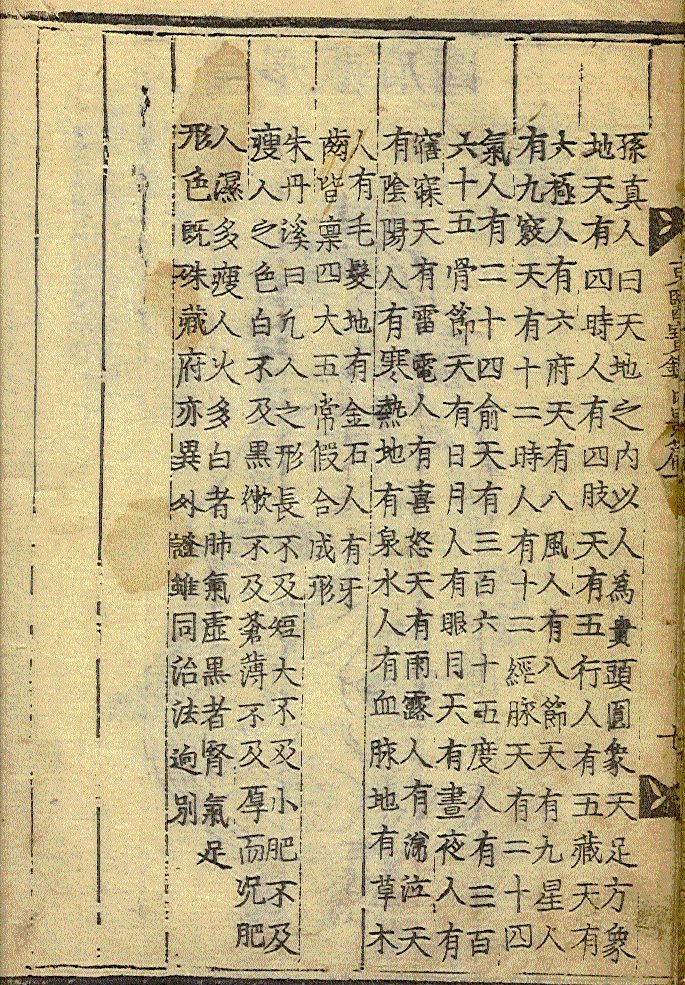 孫真人曰天地之內以人為貴頭圓象天足方象
地天有四時人有四肢天有五行人有五藏天有
六極人有六府天有八風人有八節天有九星人
有九竅天有十二時人有十二經脉天有二十四
氣人有二十四俞天有三百六十五度人有三百
六十五骨節天有日月人有眼目天有晝夜人有
寤寐天有雷電人有喜怒天有雨露人有涕泣天
有陰陽人有寒熱地有泉水人有血脉地有草木
人有毛髮地有金石人有牙
齒皆稟四大五常假合成形
朱丹溪曰凡人之形長不及短大不及小肥不及
瘦人之色白不及黑嫩不及蒼薄不及厚而況肥
人濕多瘦人火多白者肺氣虛黑者腎氣足
形色既殊藏府亦異外證雖同治法逈別